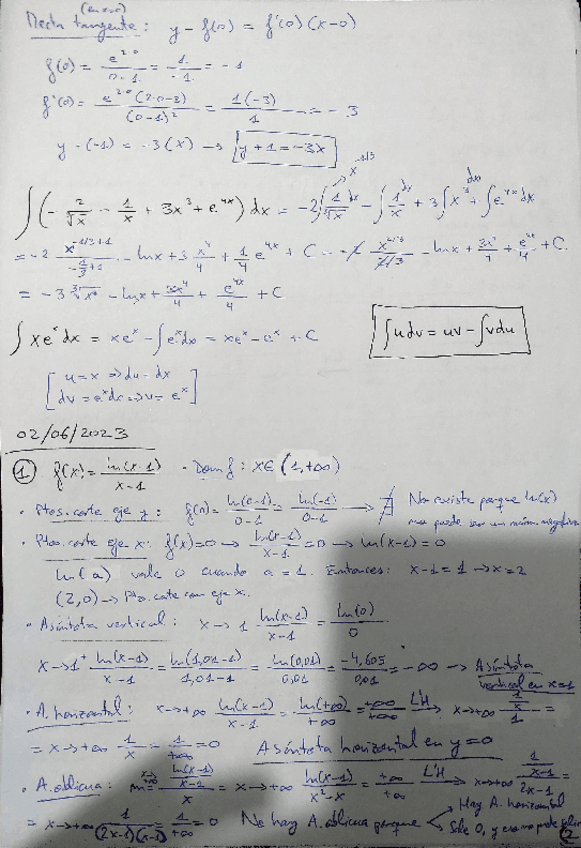 (en x=0)
Recta tangente: y - f(0) = f'(0) (x-0)
f(0) = e^{2·0} / (0-1) = 1/-1 = -1
f'(0) = e^{2·0} (2·0-3) / (0-1)² = 1(-3) / 1 = -3
y - (-1) = -3(x) → y + 1 = -3x
∫(-2/∛x - 1/x + 3x³ + e^{4x}) dx = -2∫1/∛x dx - ∫1/x dx + 3∫x³ dx + ∫e^{4x} dx
x^{-1/3}
= -2 x^{-1/3+1} / (-1/3+1) - ln x + 3 x⁴/4 + 1/4 e^{4x} + C = -2 x^{2/3} / 2/3 - ln x + 3x⁴/4 + e^{4x}/4 + C.
= -3 ∛x² - ln x + 3x⁴/4 + e^{4x}/4 + C
∫ x e^x dx = x e^x - ∫e^x dx = x e^x - e^x + C
∫u dv = uv - ∫v du
[u = x ⇒ du = dx
dv = e^x dx ⇒ v = e^x]
02/06/2023
① f(x) = ln(x-1) / (x-1) · Dom f: x∈ (1,+∞)
· Ptos. corte eje y: f(0) = ln(0-1) / (0-1) = ln(-1) / (0-1) → ∄ No existe porque ln(x)
no puede ser un núm. negativo
· Ptos. corte eje x: f(x)=0 → ln(x-1) / (x-1) = 0 → ln(x-1) = 0
ln(a) vale 0 cuando a = 1. Entonces: x-1 = 1 → x = 2
(2,0) → Pto. corte con eje x.
· Asíntota vertical: x → 1 ln(x-1) / (x-1) = ln(0) / 0
x→1⁺ ln(x-1) / (x-1) = ln(1,01-1) / (1,01-1) = ln(0,01) / 0,01 = -4,605 / 0,01 = -∞ → Asíntota
vertical en x=1
· A. horizontal: x→+∞ ln(x-1) / (x-1) = ln(+∞) / +∞ = +∞/+∞ L'H x→+∞ 1/x / 1 =
= x→+∞ 1/x = 1/+∞ = 0 Asíntota horizontal en y=0
· A. oblicua: m= x→+∞ ln(x-1)/(x-1) / x = x→+∞ ln(x-1) / (x²-x) = +∞/+∞ L'H x→+∞ 1/(x-1) / (2x-1) =
= x→+∞ 1 / (2x-1)(x-1) = 1/+∞ = 0 No hay A. oblicua porque Hay A. horizontal
Sale 0, y eso no puede
2